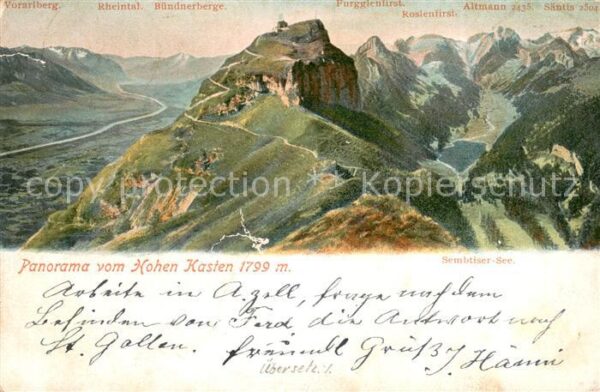 Vorarlberg. Rheintal. Bündnerberge. Furgglenfirst. Roslenfirst. Altmann 2438. Säntis 2504
copyright protection Kopierschutz
Sembtiser-See.
Panorama vom Hohen Kasten 1799 m.
Arbeite in A.zell, frage nach dem
Befinden von Ferd. die Antwort nach
St. Gallen. freundl Grüß J Hänni
Übersetz. /.